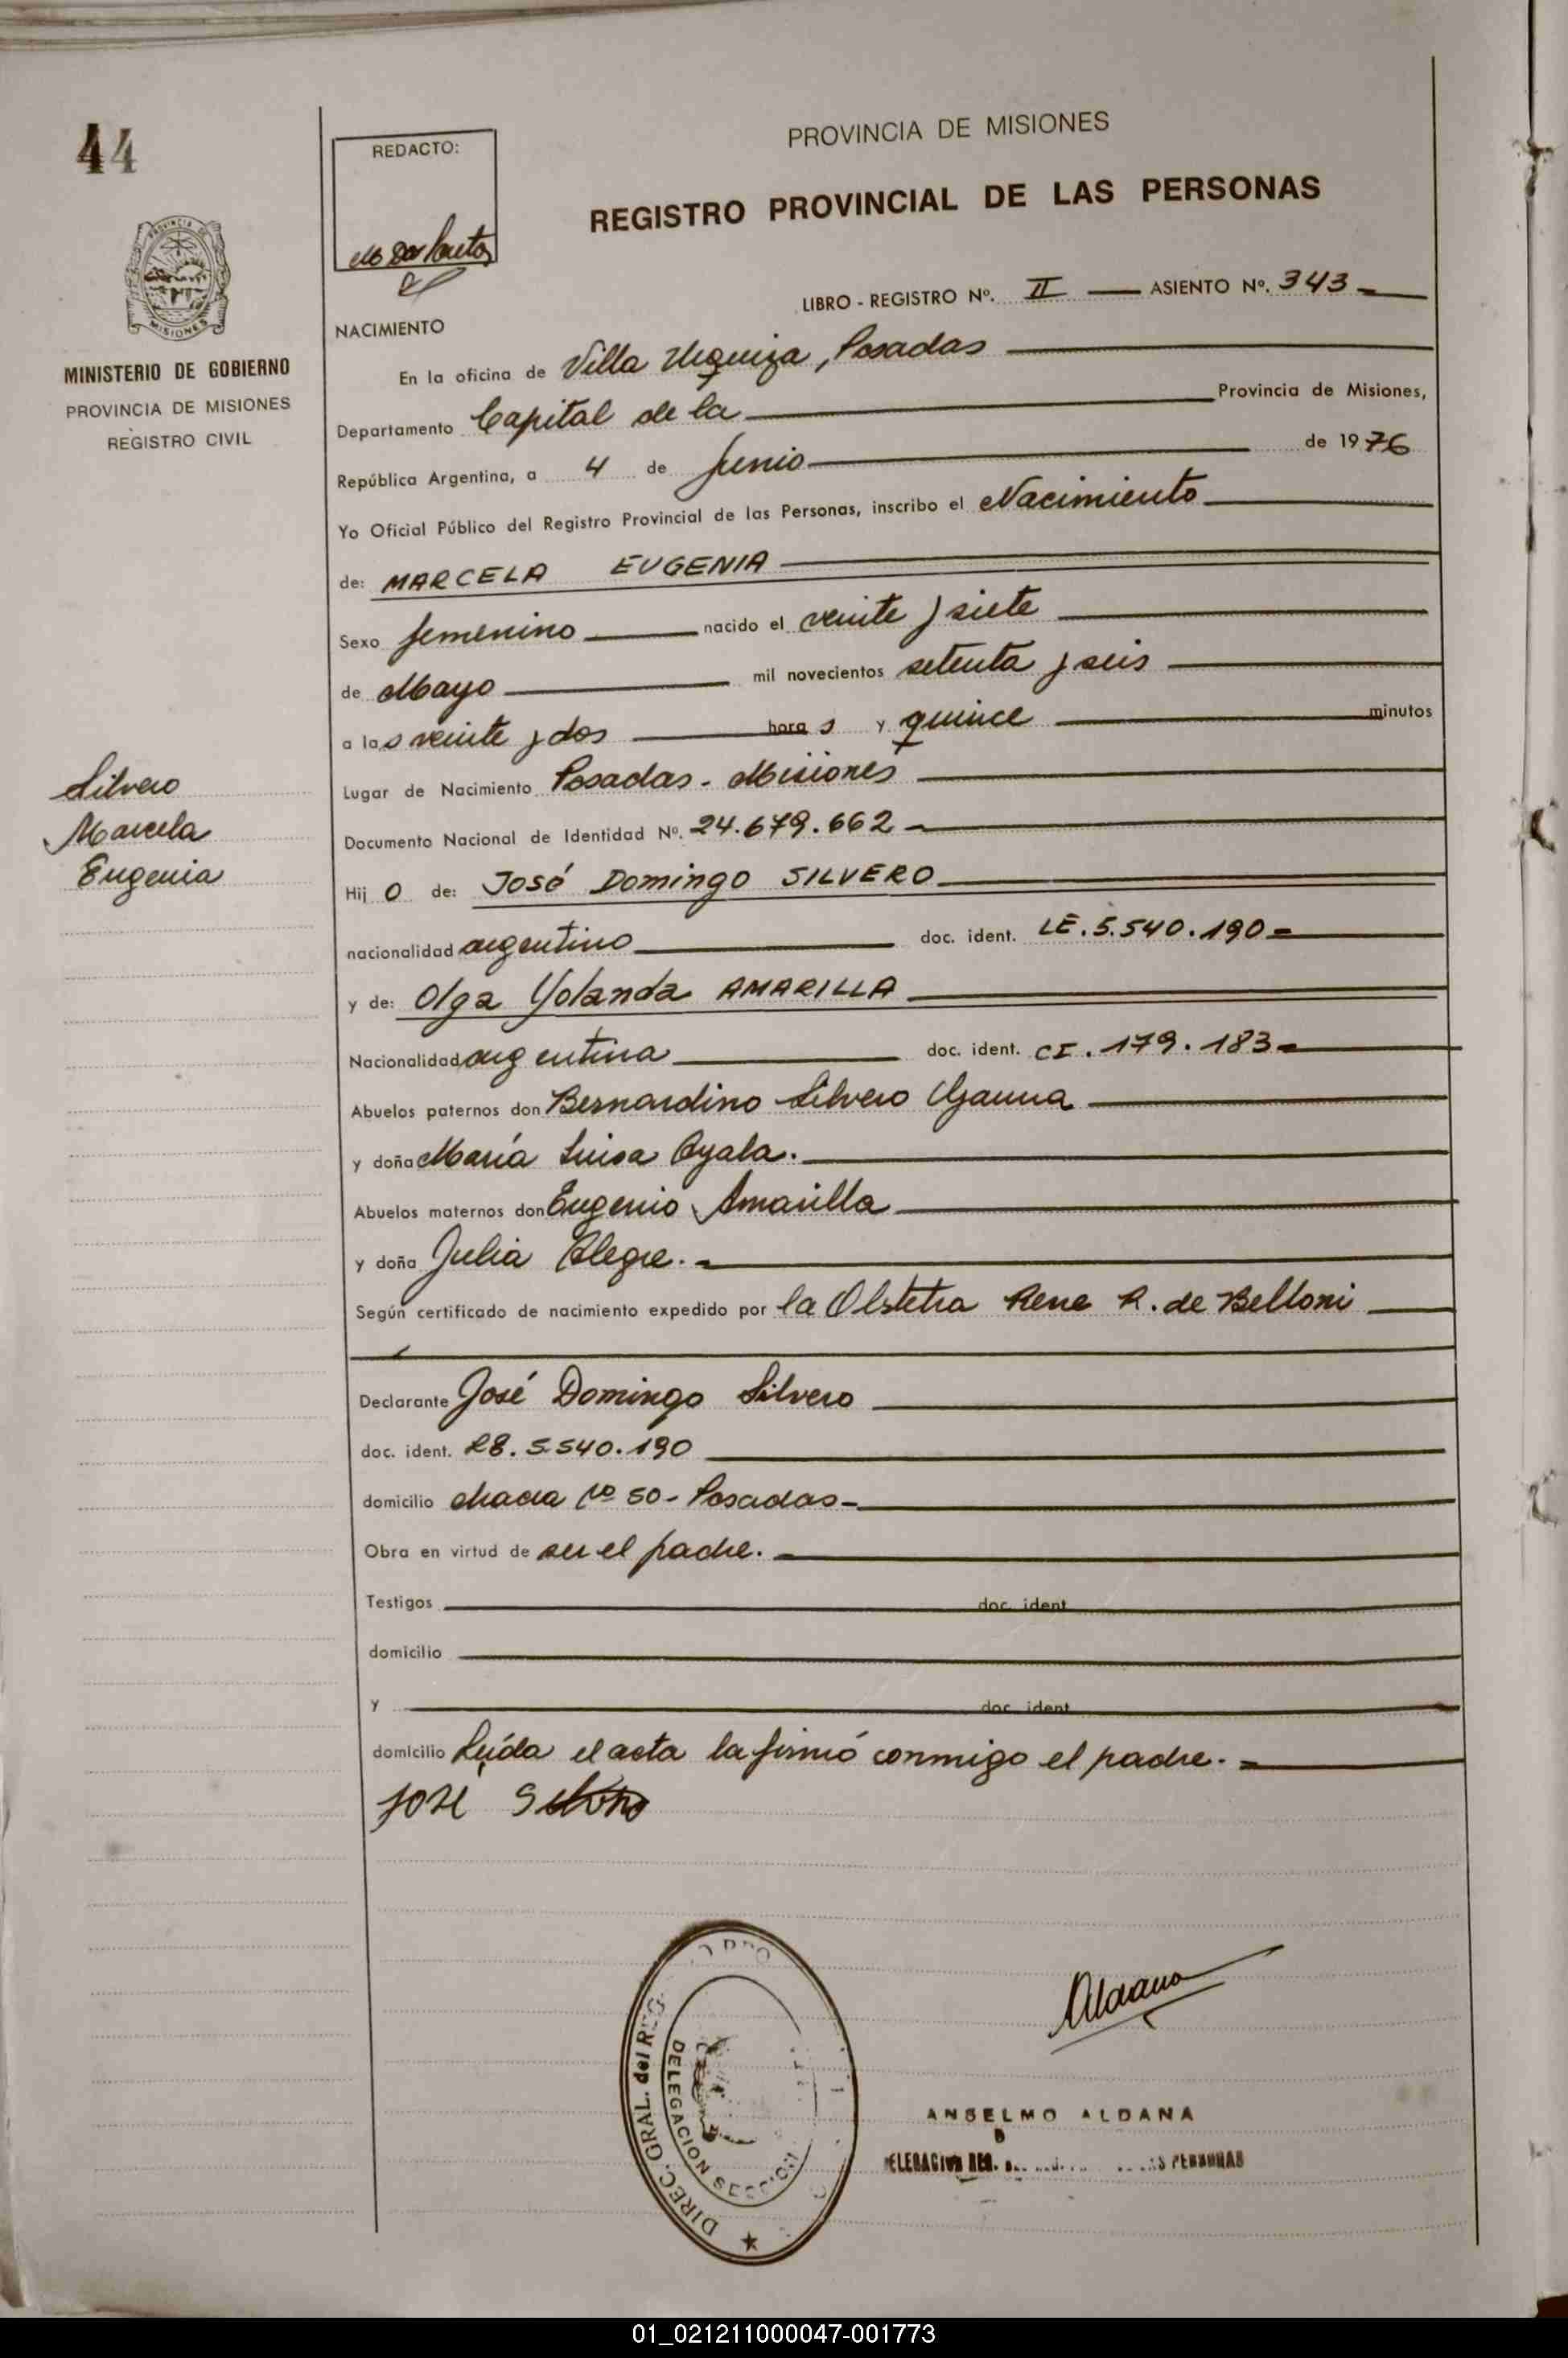 44
REDACTO:
PROVINCIA DE MISIONES
REGISTRO PROVINCIAL DE LAS PERSONAS
LIBRO - REGISTRO Nº. II ASIENTO Nº. 343
MINISTERIO DE GOBIERNO
PROVINCIA DE MISIONES
REGISTRO CIVIL
NACIMIENTO
En la oficina de Villa Urquiza, Posadas
Departamento Capital de la Provincia de Misiones,
República Argentina, a 4 de Junio de 1976
Yo Oficial Público del Registro Provincial de las Personas, inscribo el Nacimiento
de: MARCELA EUGENIA
Sexo femenino nacido el veinte y siete
de Mayo mil novecientos setenta y seis
a las veinte y dos horas y quince minutos
Lugar de Nacimiento Posadas - Misiones
Silvero
Marcela
Eugenia
Documento Nacional de Identidad Nº. 24.679.662
Hijo de: José Domingo SILVERO
nacionalidad argentino doc. ident. LE. 5.540.190
y de: Olga Yolanda AMARILLA
Nacionalidad argentina doc. ident. CI. 179.183
Abuelos paternos don Bernardino Silvero
y doña María Luisa Ayala.
Abuelos maternos don Eugenio Amarilla
y doña Julia Alegre.
Según certificado de nacimiento expedido por la Obstetra Rene R. de Belloni
Declarante José Domingo Silvero
doc. ident. 5.540.190
domicilio chacra Nº 50 - Posadas
Obra en virtud de ser el padre.
Testigos doc. ident.
domicilio
y doc. ident.
domicilio Leída el acta la firmó conmigo el padre.
José Silvero
DIREC. GRAL. del REG.
DELEGACION SECCION
Aldana
ANSELMO ALDANA
PERSONAS
01_021211000047-001773